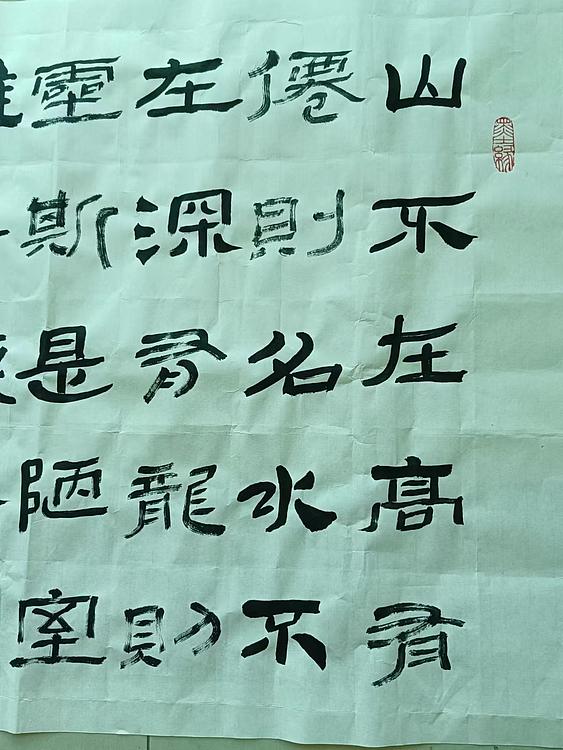 山不在高有
僊則名水不
在深有龍則
靈斯是陋室